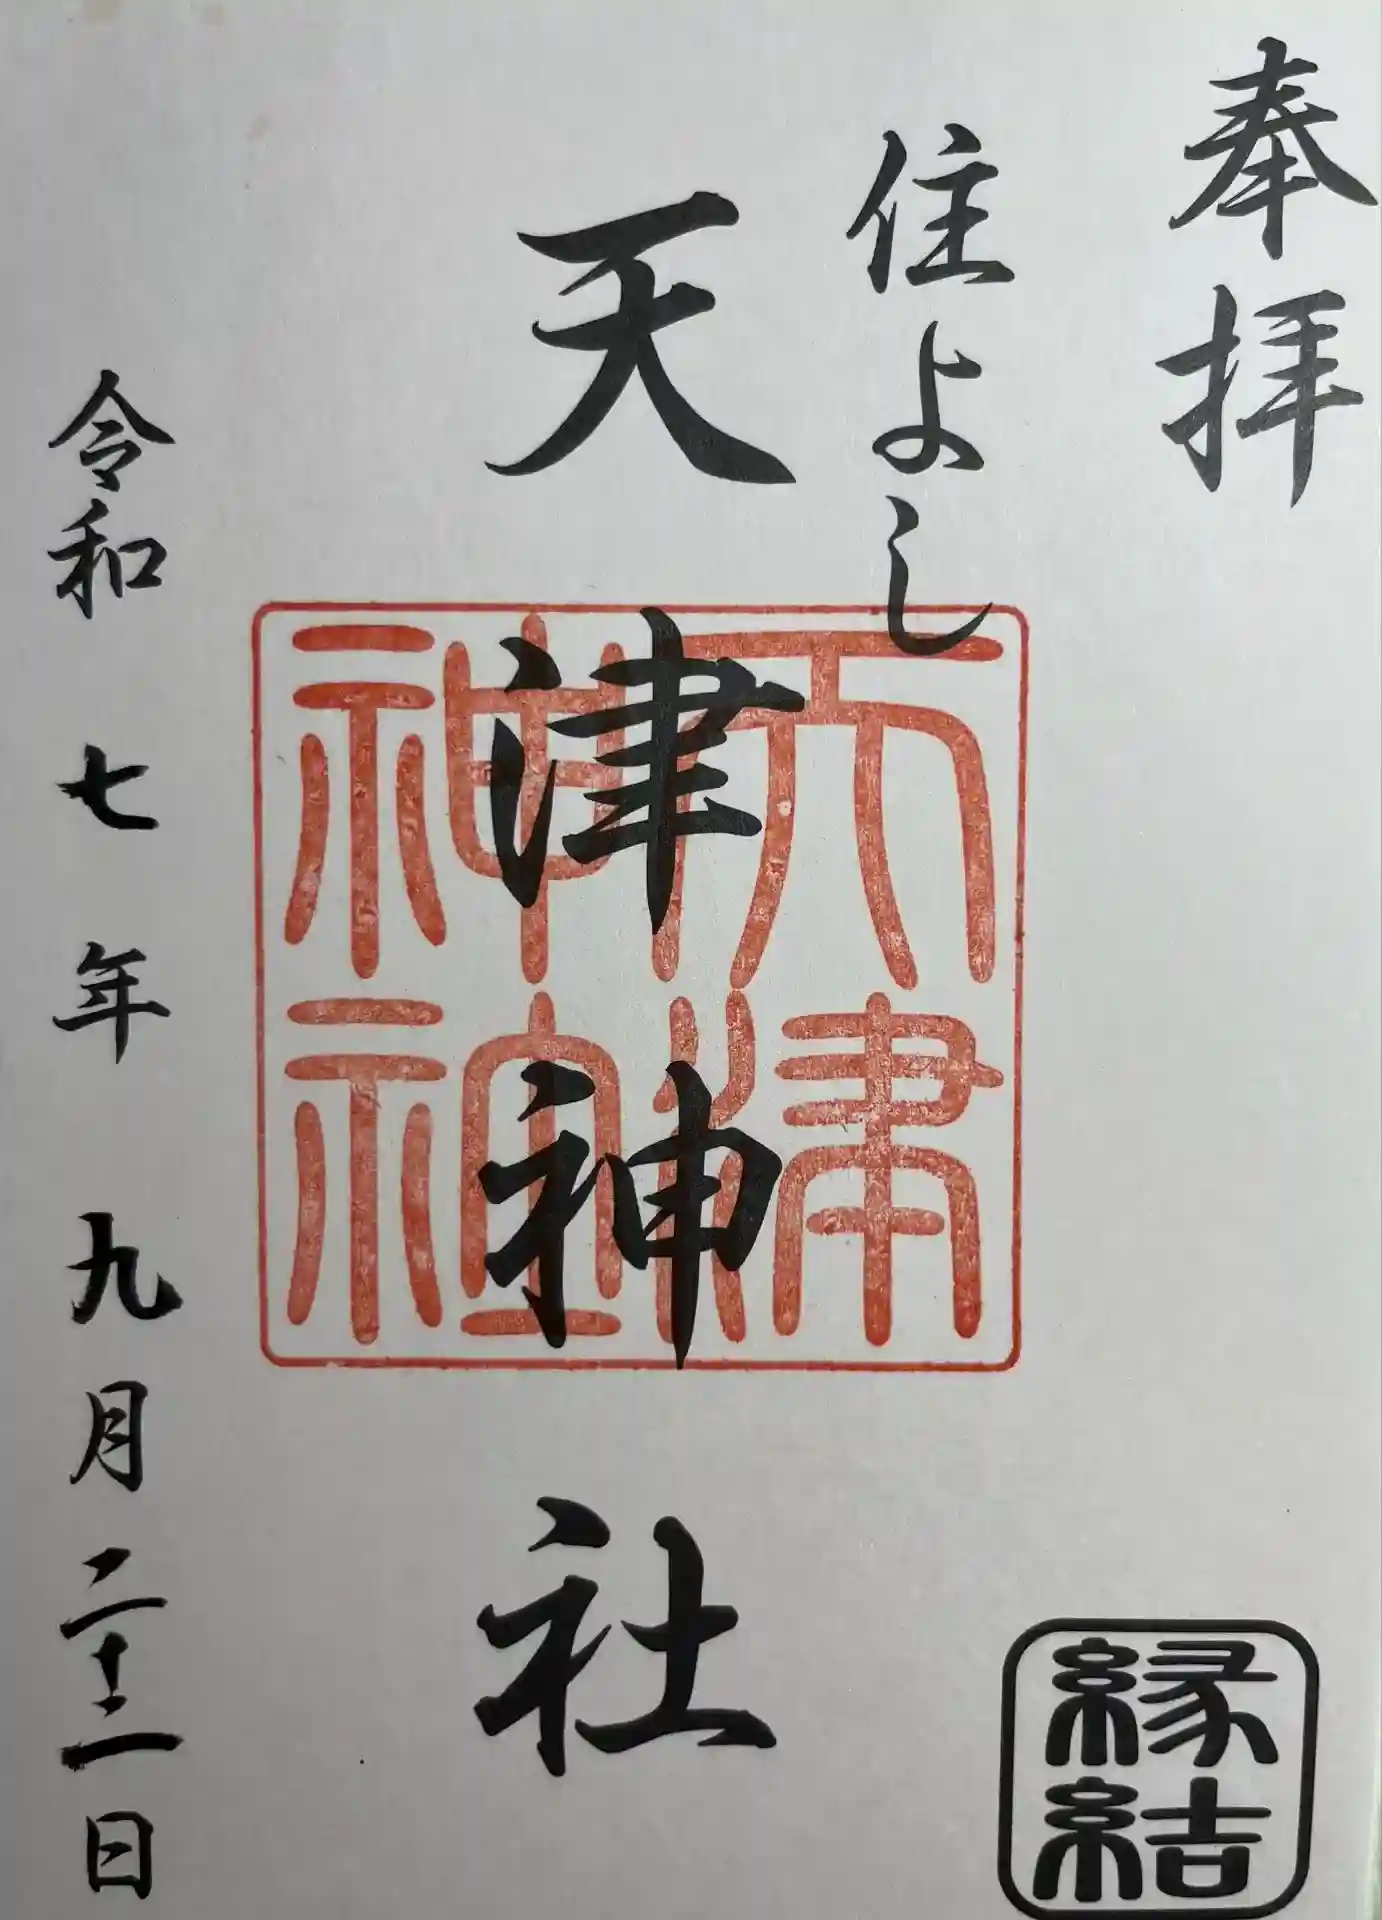 奉拝
住よし
天津神社
天津神社
令和七年九月二十二日
縁結